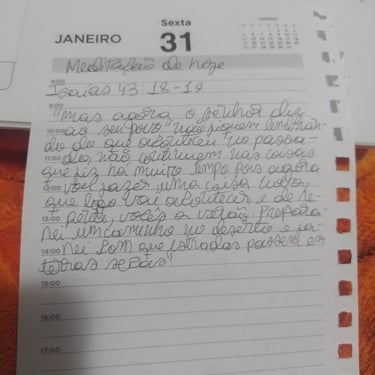 Sexta
JANEIRO 31
JANEIRO
Meditação de hoje
8:00
Isaías 43:18-19
9:00
"Mas agora o senhor diz
10:00 ao seu povo não fiquem lembran-
do do que aconteceu no passa-
do, não continuem nas coisas
que fiz há muito tempo pois agora
vou fazer uma coisa nova,
que logo vai acontecer, e de re-
13:00 pente, vocês a verão. Prepara-
rei um caminho no deserto e fa-
14:00 rei com que estradas passem em
terras secas"
15:00
16:00
17:00